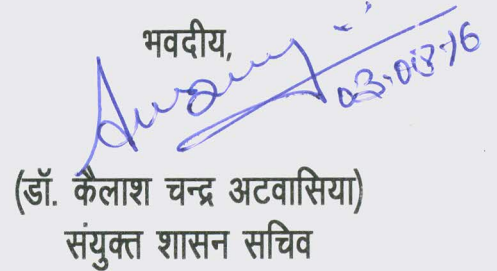 भवदीय,
03-03-16
(डॉ. कैलाश चन्द्र अटवासिया)
संयुक्त शासन सचिव